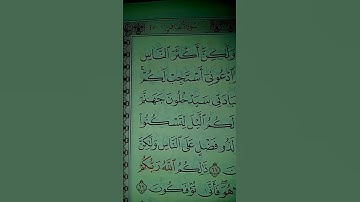 وَلَٰكِنَّ أَكْثَرَ ٱلنَّاسِ
ٱدْعُونِىٓ أَسْتَجِبْ لَكُمْ
سَيَدْخُلُونَ جَهَنَّمَ
لَكُمُ ٱلَّيْلَ لِتَسْكُنُوا۟
لَذُو فَضْلٍ عَلَى ٱلنَّاسِ وَلَٰكِنَّ
ذَٰلِكُمُ ٱللَّهُ رَبُّكُمْ
هُوَ فَأَنَّىٰ تُؤْفَكُونَ